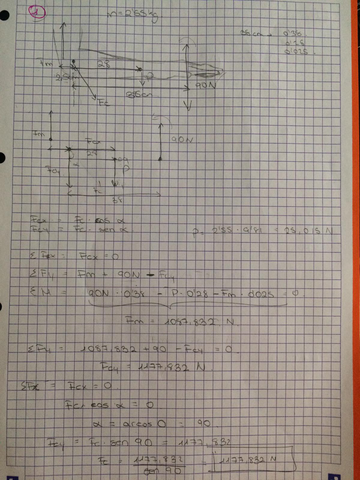 2
38cm = 0'38
0'28
0'025
Fm
28
90N
Fc
38
Fm
Fcx
28
90N
Fcy
P
38
Fcx = Fc · cos α
Fcy = Fc · sen α
ΣFx = Fcx = 0
ΣFy = Fm + 90N - Fcy
ΣM = 90N · 0'38 - P · 0'28 - Fm · 0'025 = 0
Fm = 1087,832 N
ΣFy = 1087,832 + 90 - Fcy = 0
Fcy = 1177,832 N
ΣFx = Fcx = 0
Fc · cos α = 0
α = arcos 0 = 90
Fcy = Fc · sen 90 = 1177,832
Fc = 1177,832 / sen 90 = 1177,832 N